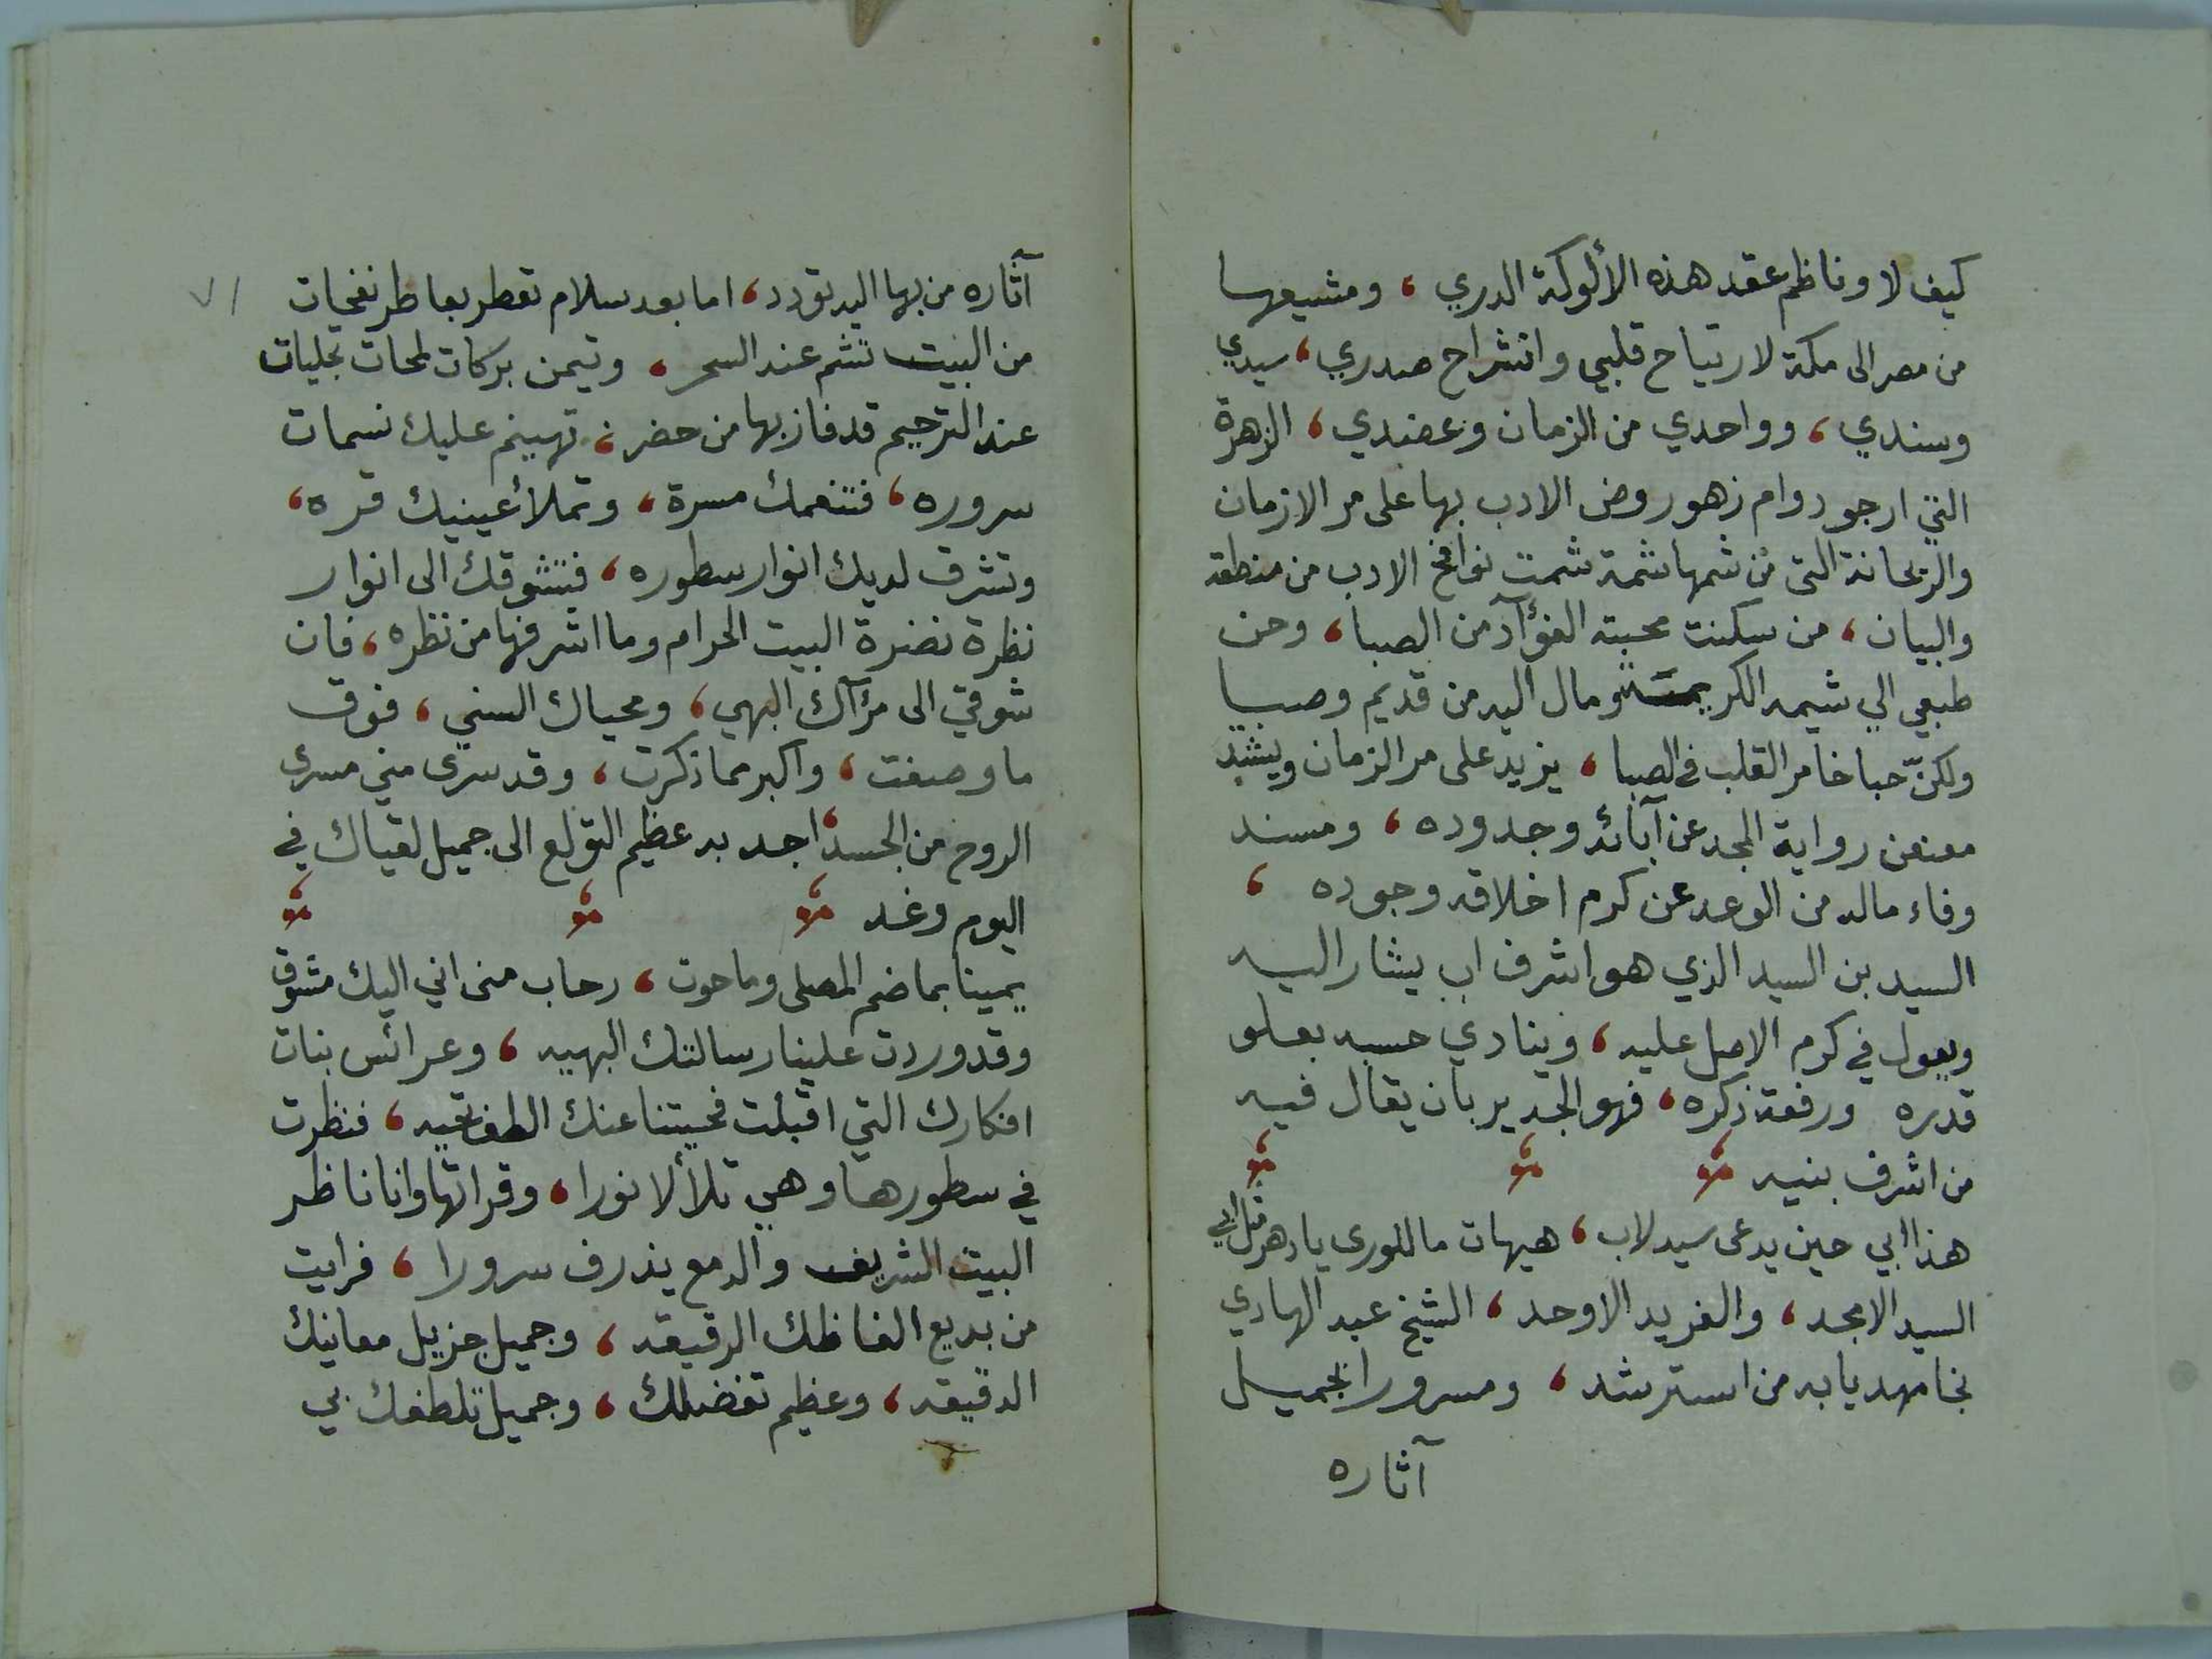 كيف لا وناظم عقد هذه الألوكة الدري ، ومشيعها
من مصر الى مكة لارتياح قلبي وانشراح صدري ، سيدي
وسندي ، وواحدي من الزمان وعضدي ، الزهرة
التي ارجو دوام زهور روض الادب بها على مر الازمان
والريحانة التي من شمها شمة شمت نوافح الادب من منطقه
والبيان ، من سكنت محبته الفؤآد من الصبا ، وحن
طبعي الي شيمه الكريمة ومال اليه من قديم وصبا
ولكنّ حبا خامر القلب في الصبا ، يزيد على مر الزمان ويشتد
معنعن رواية المجد عن آبائه وجدوده ، ومسند
وفاء ماله من الوعد عن كرم اخلاقه وجوده ،
السيد بن السيد الذي هو اشرف اب يشار اليه
ويعول في كرم الاصل عليه ، وينادي حسبه بعلو
قدره ورفعة ذكره ، فهو الجدير بان يقال فيه
من اشرف بنيه
هذا ابي حين يدعى سيد لاب ، هيهات ما للورى يا دهر مثل ابي
السيد الامجد ، والفريد الاوحد ، الشيخ عبد الهادي
نجا مهديا به من استرشد ، ومسرورا بجميل
آثاره
٧١
آثاره من بها اليه تودد ، اما بعد سلام تعطر بعاطر نفحات
من البيت تشم عند السحر ، وتيمن بركات لمحات تجليات
عند الترحيم قد فاز بها من حضر ، تهينم عليك نسمات
سروره ، فتنعمك مسرة ، وتملأ عينيك قره ،
وتشرف لديك انوار سطوره ، فتشوقك الى انوار
نظرة نضرة البيت الحرام وما اشرفها من نظره ، فان
شوقي الى مرآك البهي ، ومحياك السني ، فوق
ما وصفت ، واكبر مما ذكرت ، وقد سرى مني مسرى
الروح من الجسد ، اجد به عظيم التولع الى جميل لقياك في
اليوم وغد
يمينا بما ضم المصلى وما حوت ، رحاب منى اني اليك مشوق
وقد وردت علينا رسالتك البهيه ، وعرائس بنات
افكارك التي اقبلت فحيتنا عنك الطف تحيه ، فنظرت
في سطورها وهي تلألأ نورا ، وقراتها وانا ناظر
البيت الشريف والدمع يذرف سرورا ، فرايت
من بديع الفاظك الرقيقه ، وجميل جزيل معانيك
الدقيقه ، وعظيم تفضلك ، وجميل تلطفك بي